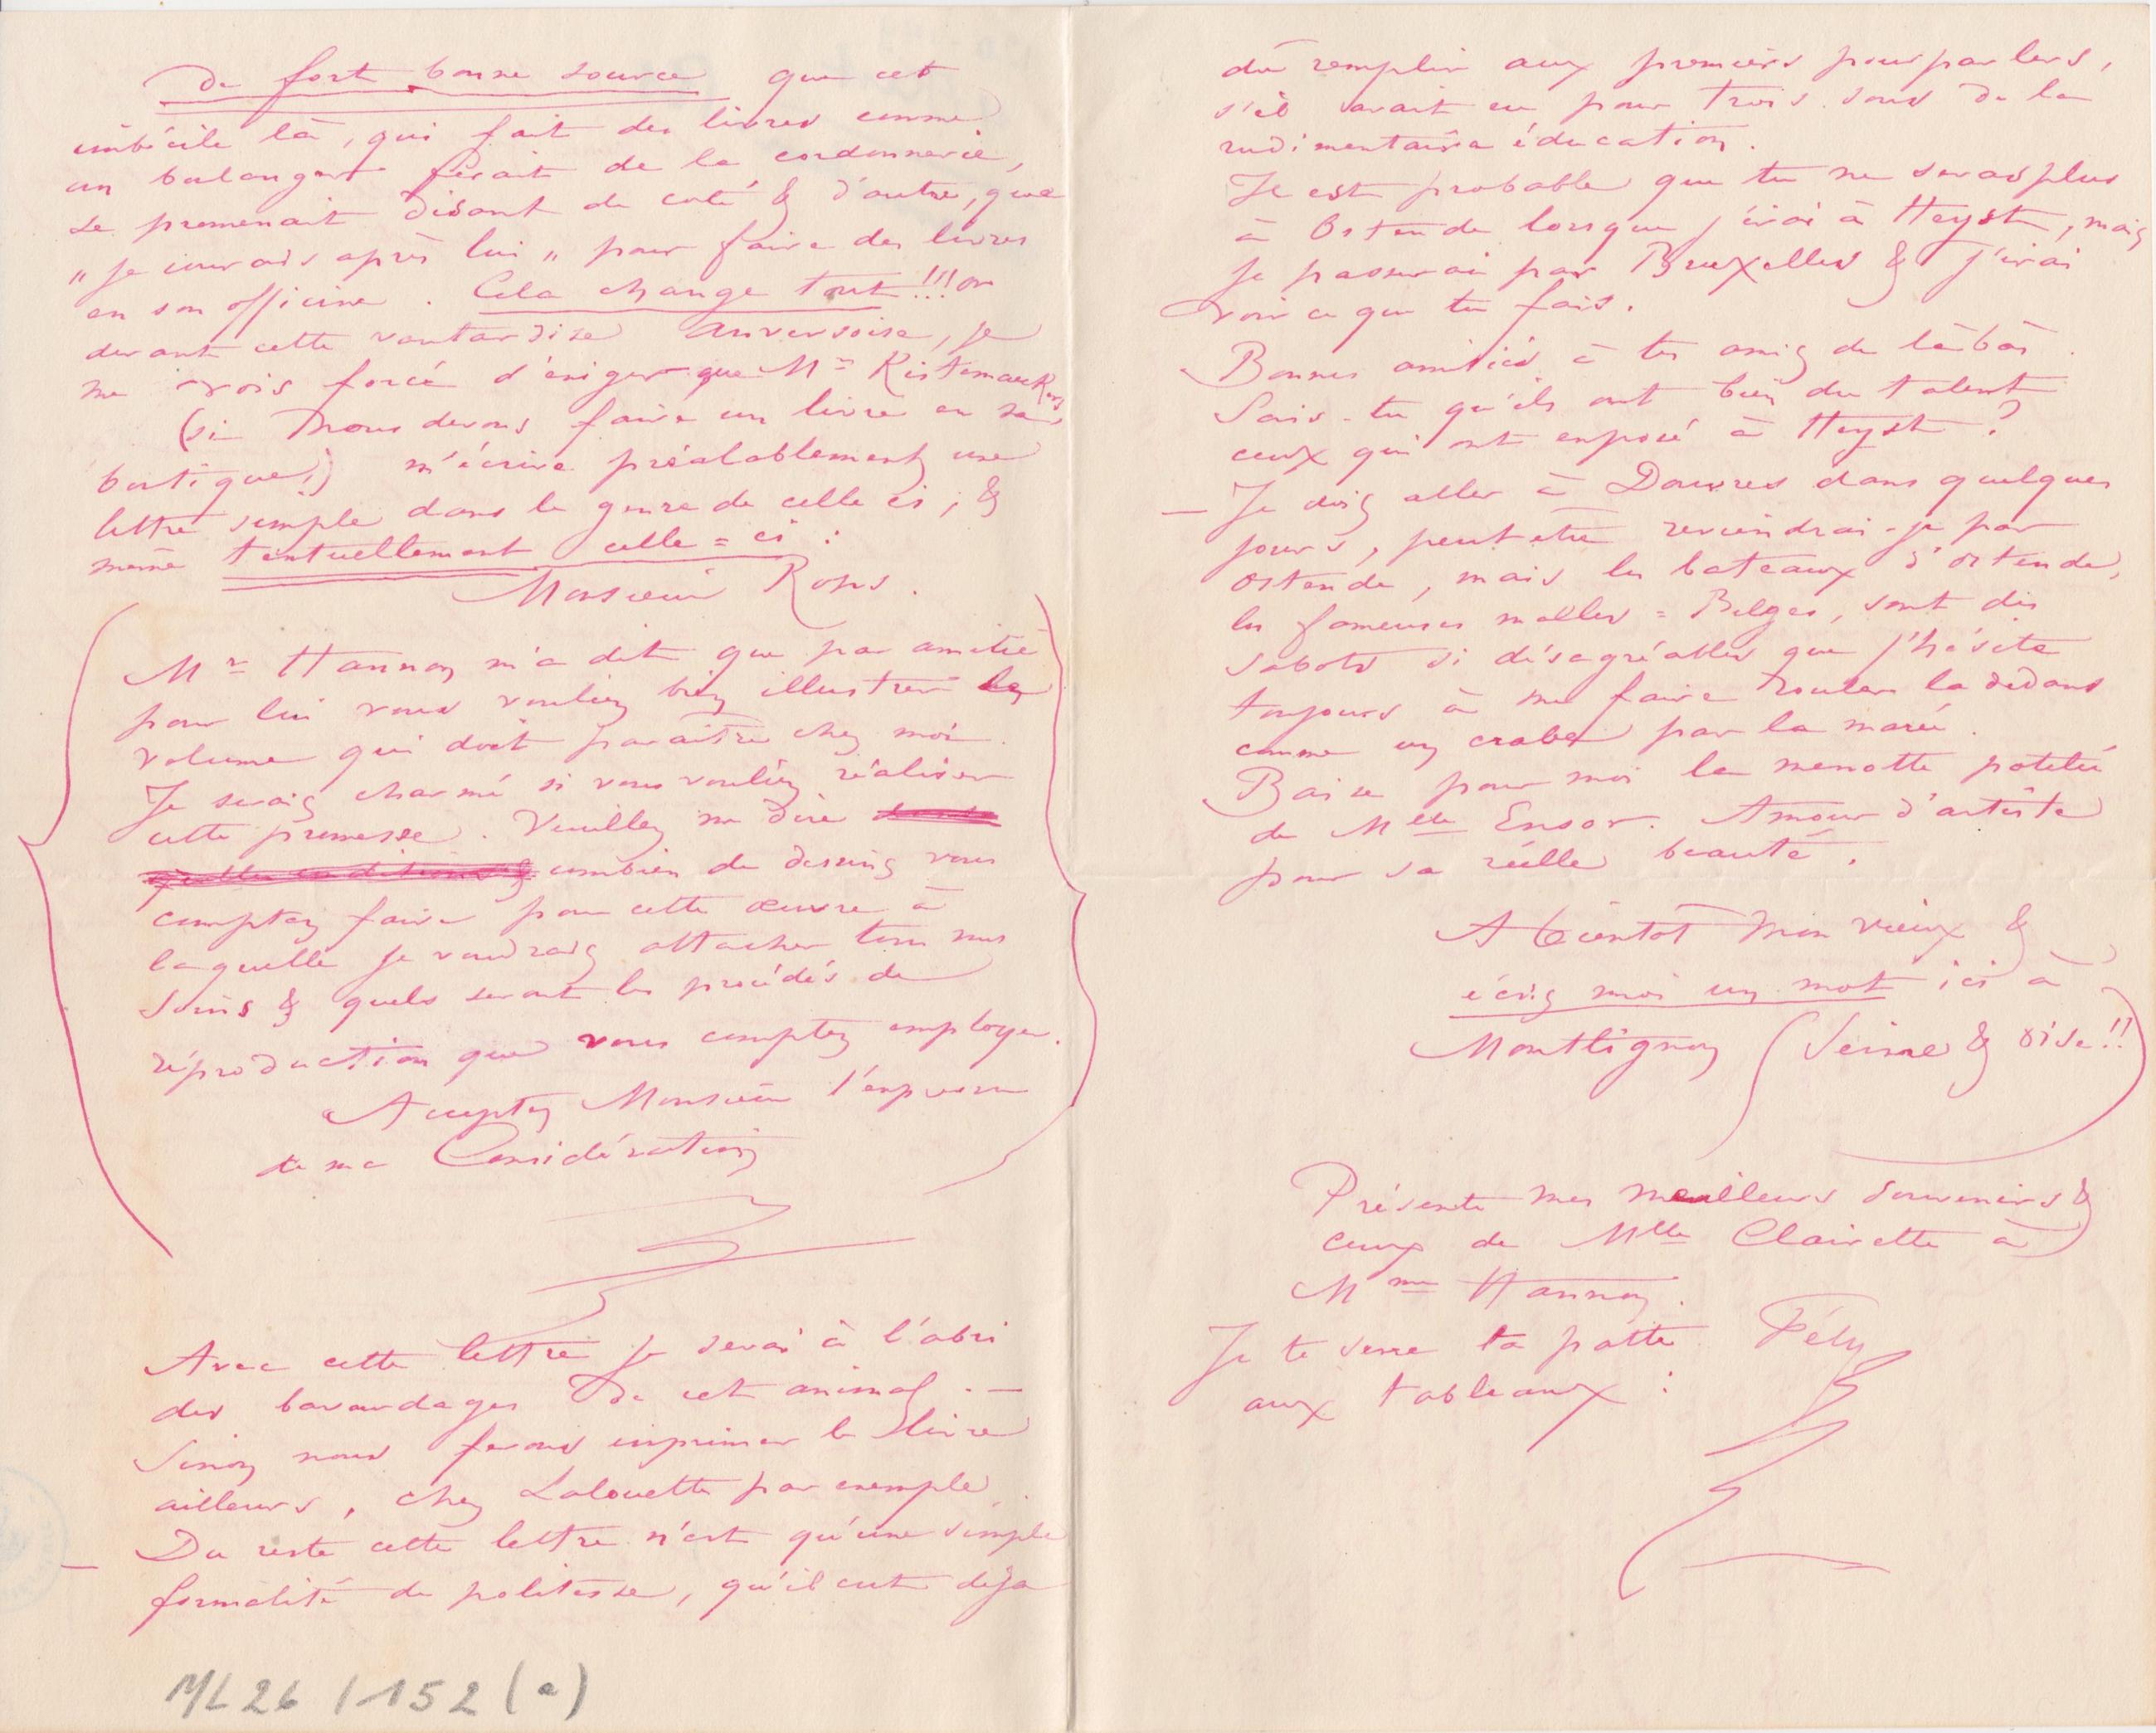 De fort bonne source que cet
imbécile là, qui fait des livres comme
un boulanger ferait de la cordonnerie,
se promenait disant de coté & d'autre, que
"je courais après lui" pour faire des livres
en son officine. Cela change tout!!! or
devant cette vantardise anversoise, je
me vois forcé d'exiger que Mr Kistemaekers
(si nous devons faire un livre en sa
boutique,) m'écrive préalablement une
lettre simple dans le genre de celle ci, &
même textuellement celle=ci :
Monsieur Rops.
Mr Hannon m'a dit que par amitié
pour lui vous vouliez bien illustrer le
volume qui doit paraître chez moi.
Je serais charmé si vous vouliez réaliser
cette promesse. Veuillez me dire
quelles conditions & combien de dessins vous
comptez faire pour cette œuvre à
laquelle je voudrais attacher tous mes
soins & quels seront les procédés de
réproduction que vous comptez employer.
Acceptez Monsieur l'expression
de ma Considération
Avec cette lettre je serai à l'abri
des bavardages de cet animal. —
Sinon nous ferons imprimer le livre
ailleurs, chez Lalouette par exemple.
— Du reste cette lettre n'est qu'une simple
formalité de politesse, qu'il eut déja
ML 26 / 152 (a)
dû remplir aux premiers pourparlers,
s'il avait eu pour trois sous de la
rudimentaire éducation.
Il est probable que tu ne seras plus
à Ostende lorsque j'irai à Heyst, mais
je passerai par Bruxelles & j'irai
voir ce que tu fais.
Bonnes amitiés à tes amis de làbas.
Sais-tu qu'ils ont bien du talent
ceux qui ont exposé à Heyst?
— Je dois aller à Douvres dans quelques
jours, peut etre reviendrai-je par
Ostende, mais les bateaux d'ostende,
les fameuses malles=Belges, sont des
sabots si désagréables que j'hésite
toujours à me faire rouler la dedans
comme un crabe par la marée.
Baise pour moi la menotte potelée
de Mlle Ensor. Amour d'artiste
pour sa réelle beauté.
A bientôt mon vieux &
écris moi un mot ici à
Montlignon (Seine & oise!!)
Présente mes meilleurs souvenirs &
ceux de Mlle Clairette à
Mme Hannon.
Je te serre ta patte Fély
aux tableaux :